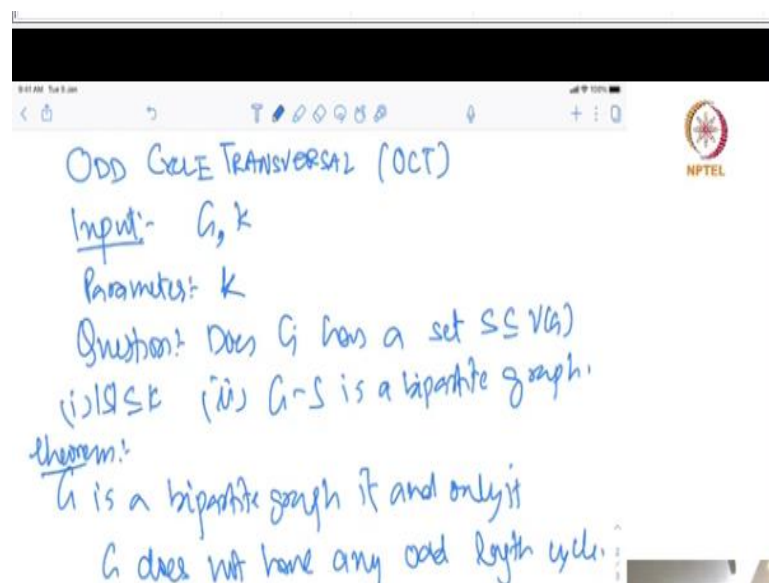 9:41 AM Tue 9 Jan
100%
NPTEL
ODD CYCLE TRANSVERSAL (OCT)
Input:- G, k
Parameter:- k
Question:- Does G has a set S ⊆ V(G)
(i) |S| ≤ k (ii) G-S is a bipartite graph.
theorem:-
G is a bipartite graph if and only if
G does not have any odd length cycle.